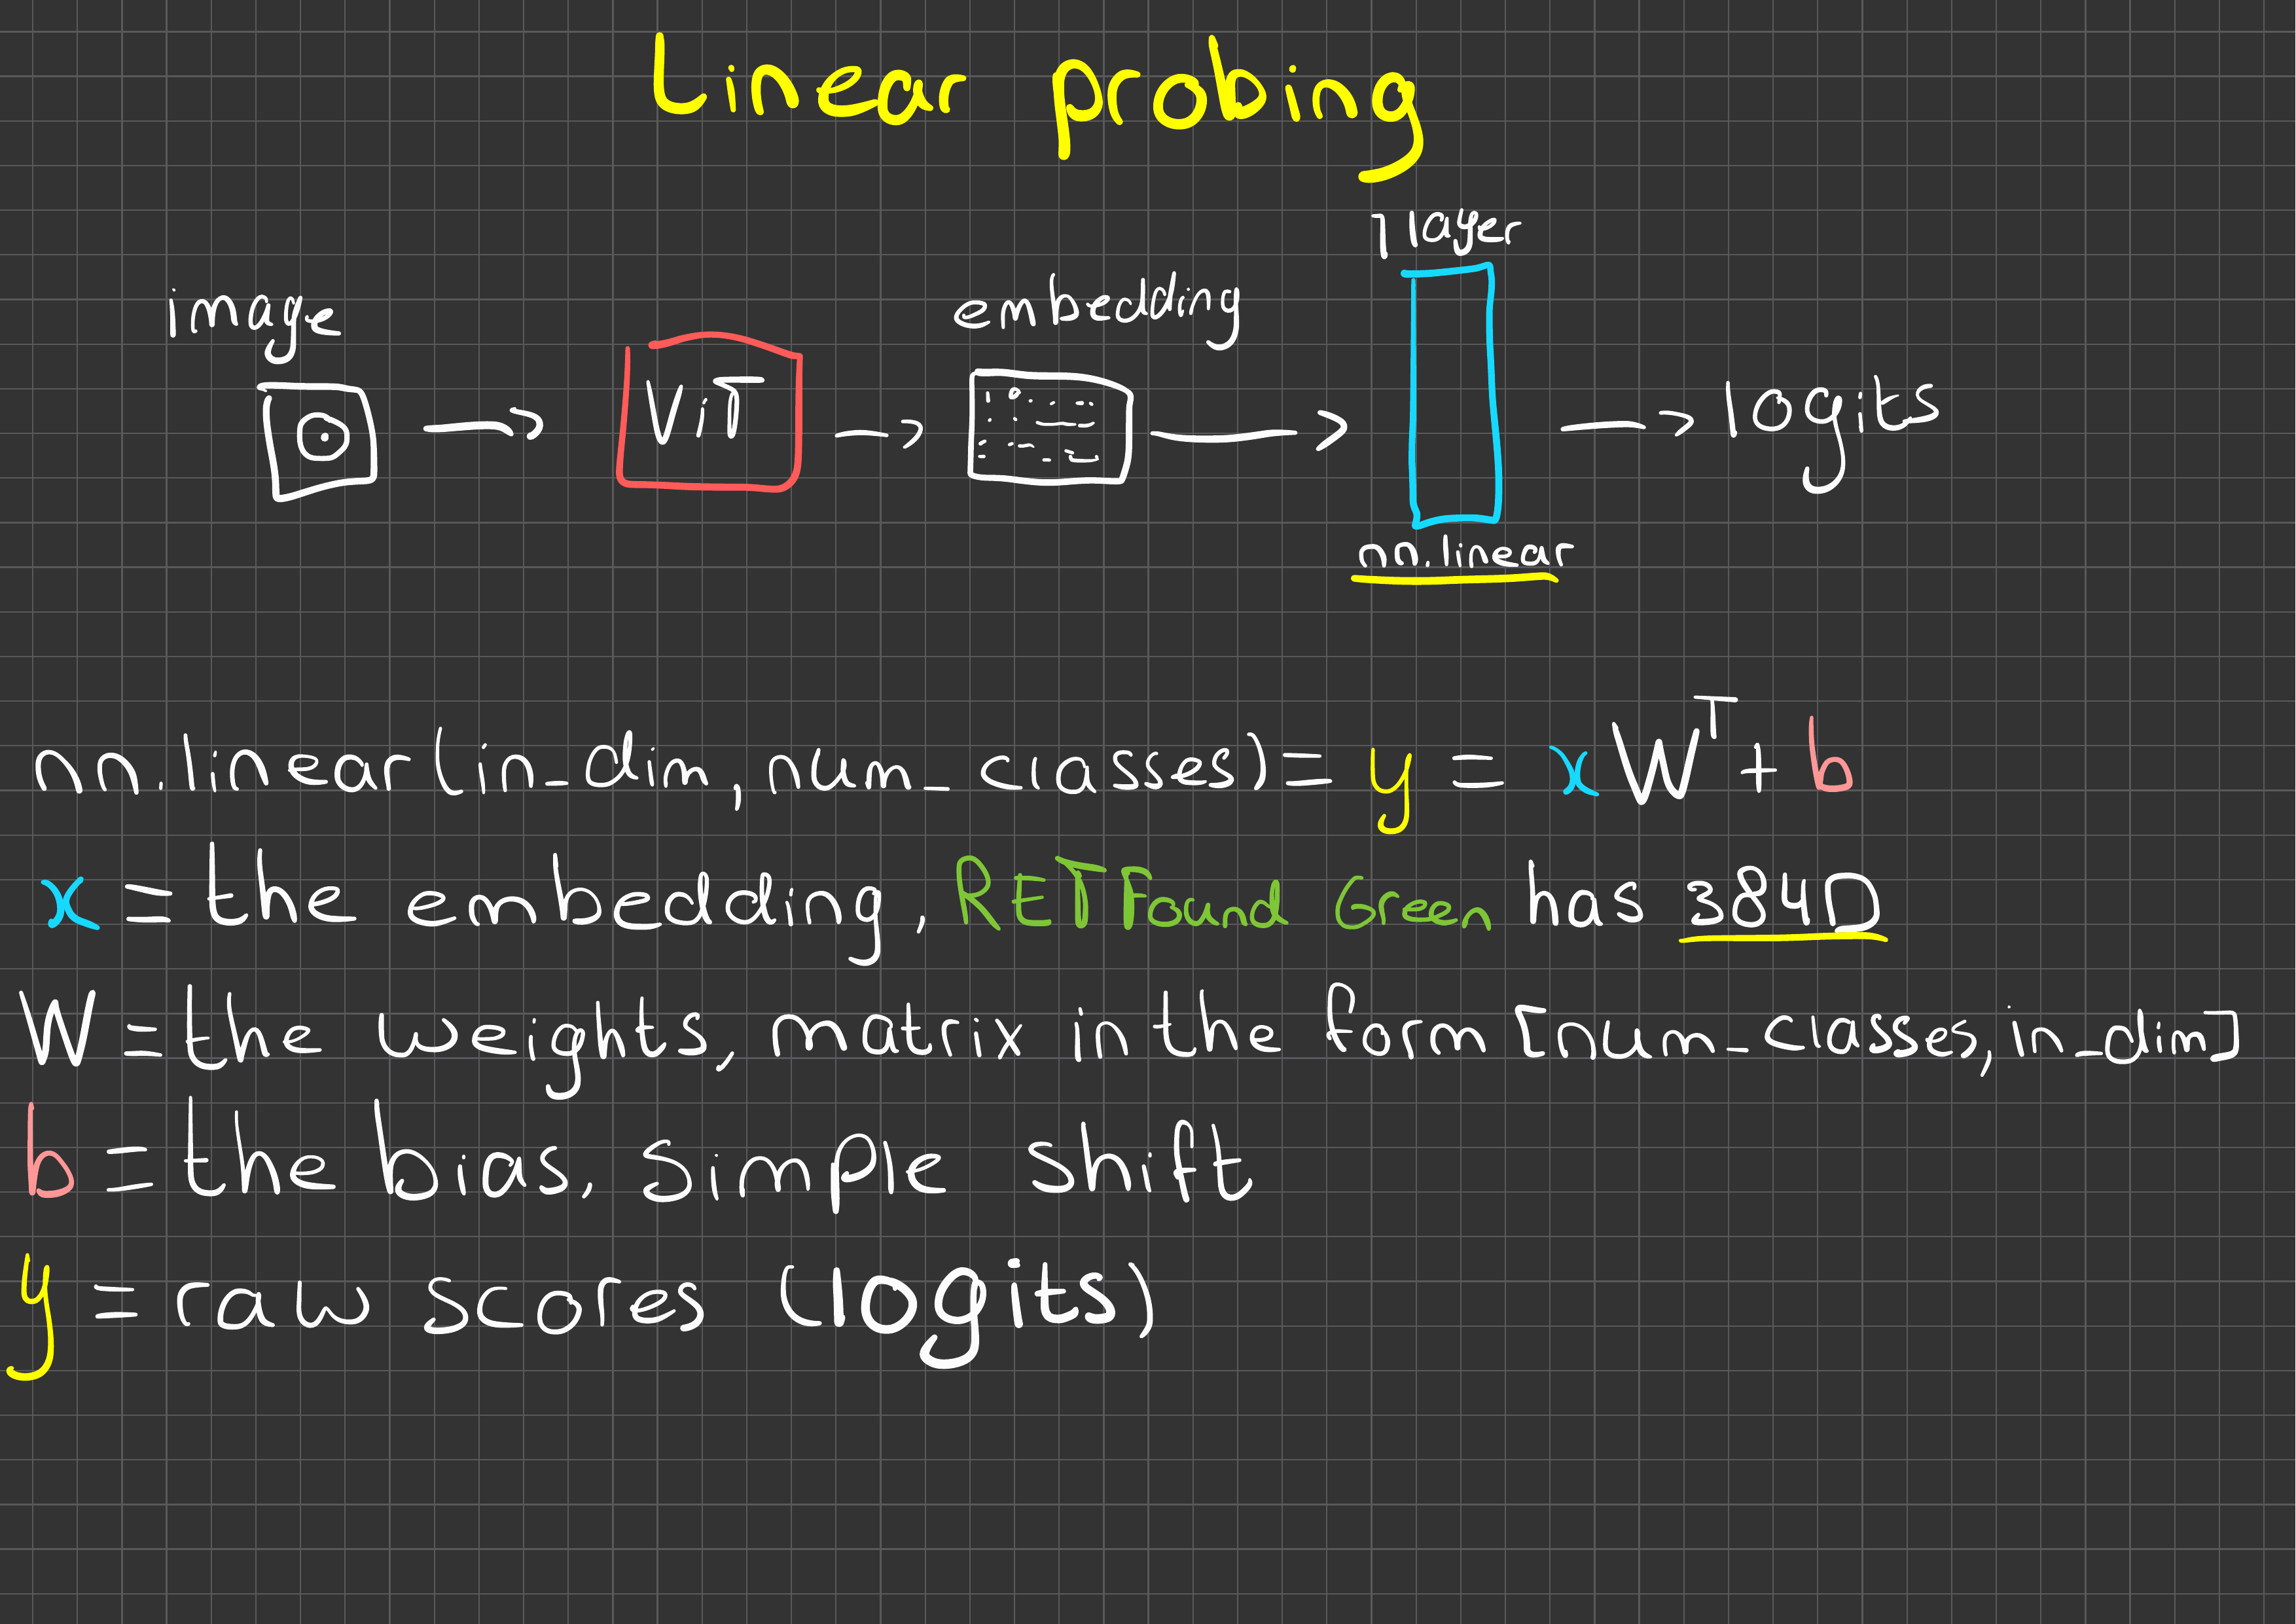 Linear probing
1 layer
image
embedding
ViT
logits
nn.linear
nn.linear(in_dim,num_classes)= y = xWᵀ+ b
x = the embedding, RETFound Green has 384D
W = the weights, matrix in the form [num_classes, in_dim]
b = the bias, simple shift
y = raw scores (logits)